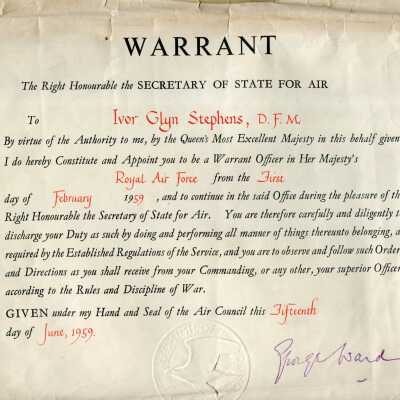 WARRANT
The Right Honourable the SECRETARY OF STATE FOR AIR
To Ivor Glyn Stephens, D.F.M.
By virtue of the Authority to me, by the Queen's Most Excellent Majesty in this behalf given
I do hereby Constitute and Appoint you to be a Warrant Officer in Her Majesty's
Royal Air Force from the First
day of February 1959, and to continue in the said Office during the pleasure of th
Right Honourable the Secretary of State for Air. You are therefore carefully and diligently t
discharge your Duty as such by doing and performing all manner of things thereunto belonging, a
required by the Established Regulations of the Service, and you are to observe and follow such Order
and Directions as you shall receive from your Commanding, or any other, your superior Officer
according to the Rules and Discipline of War.
GIVEN under my Hand and Seal of the Air Council this Fifteenth
day of June, 1959.
George Ward